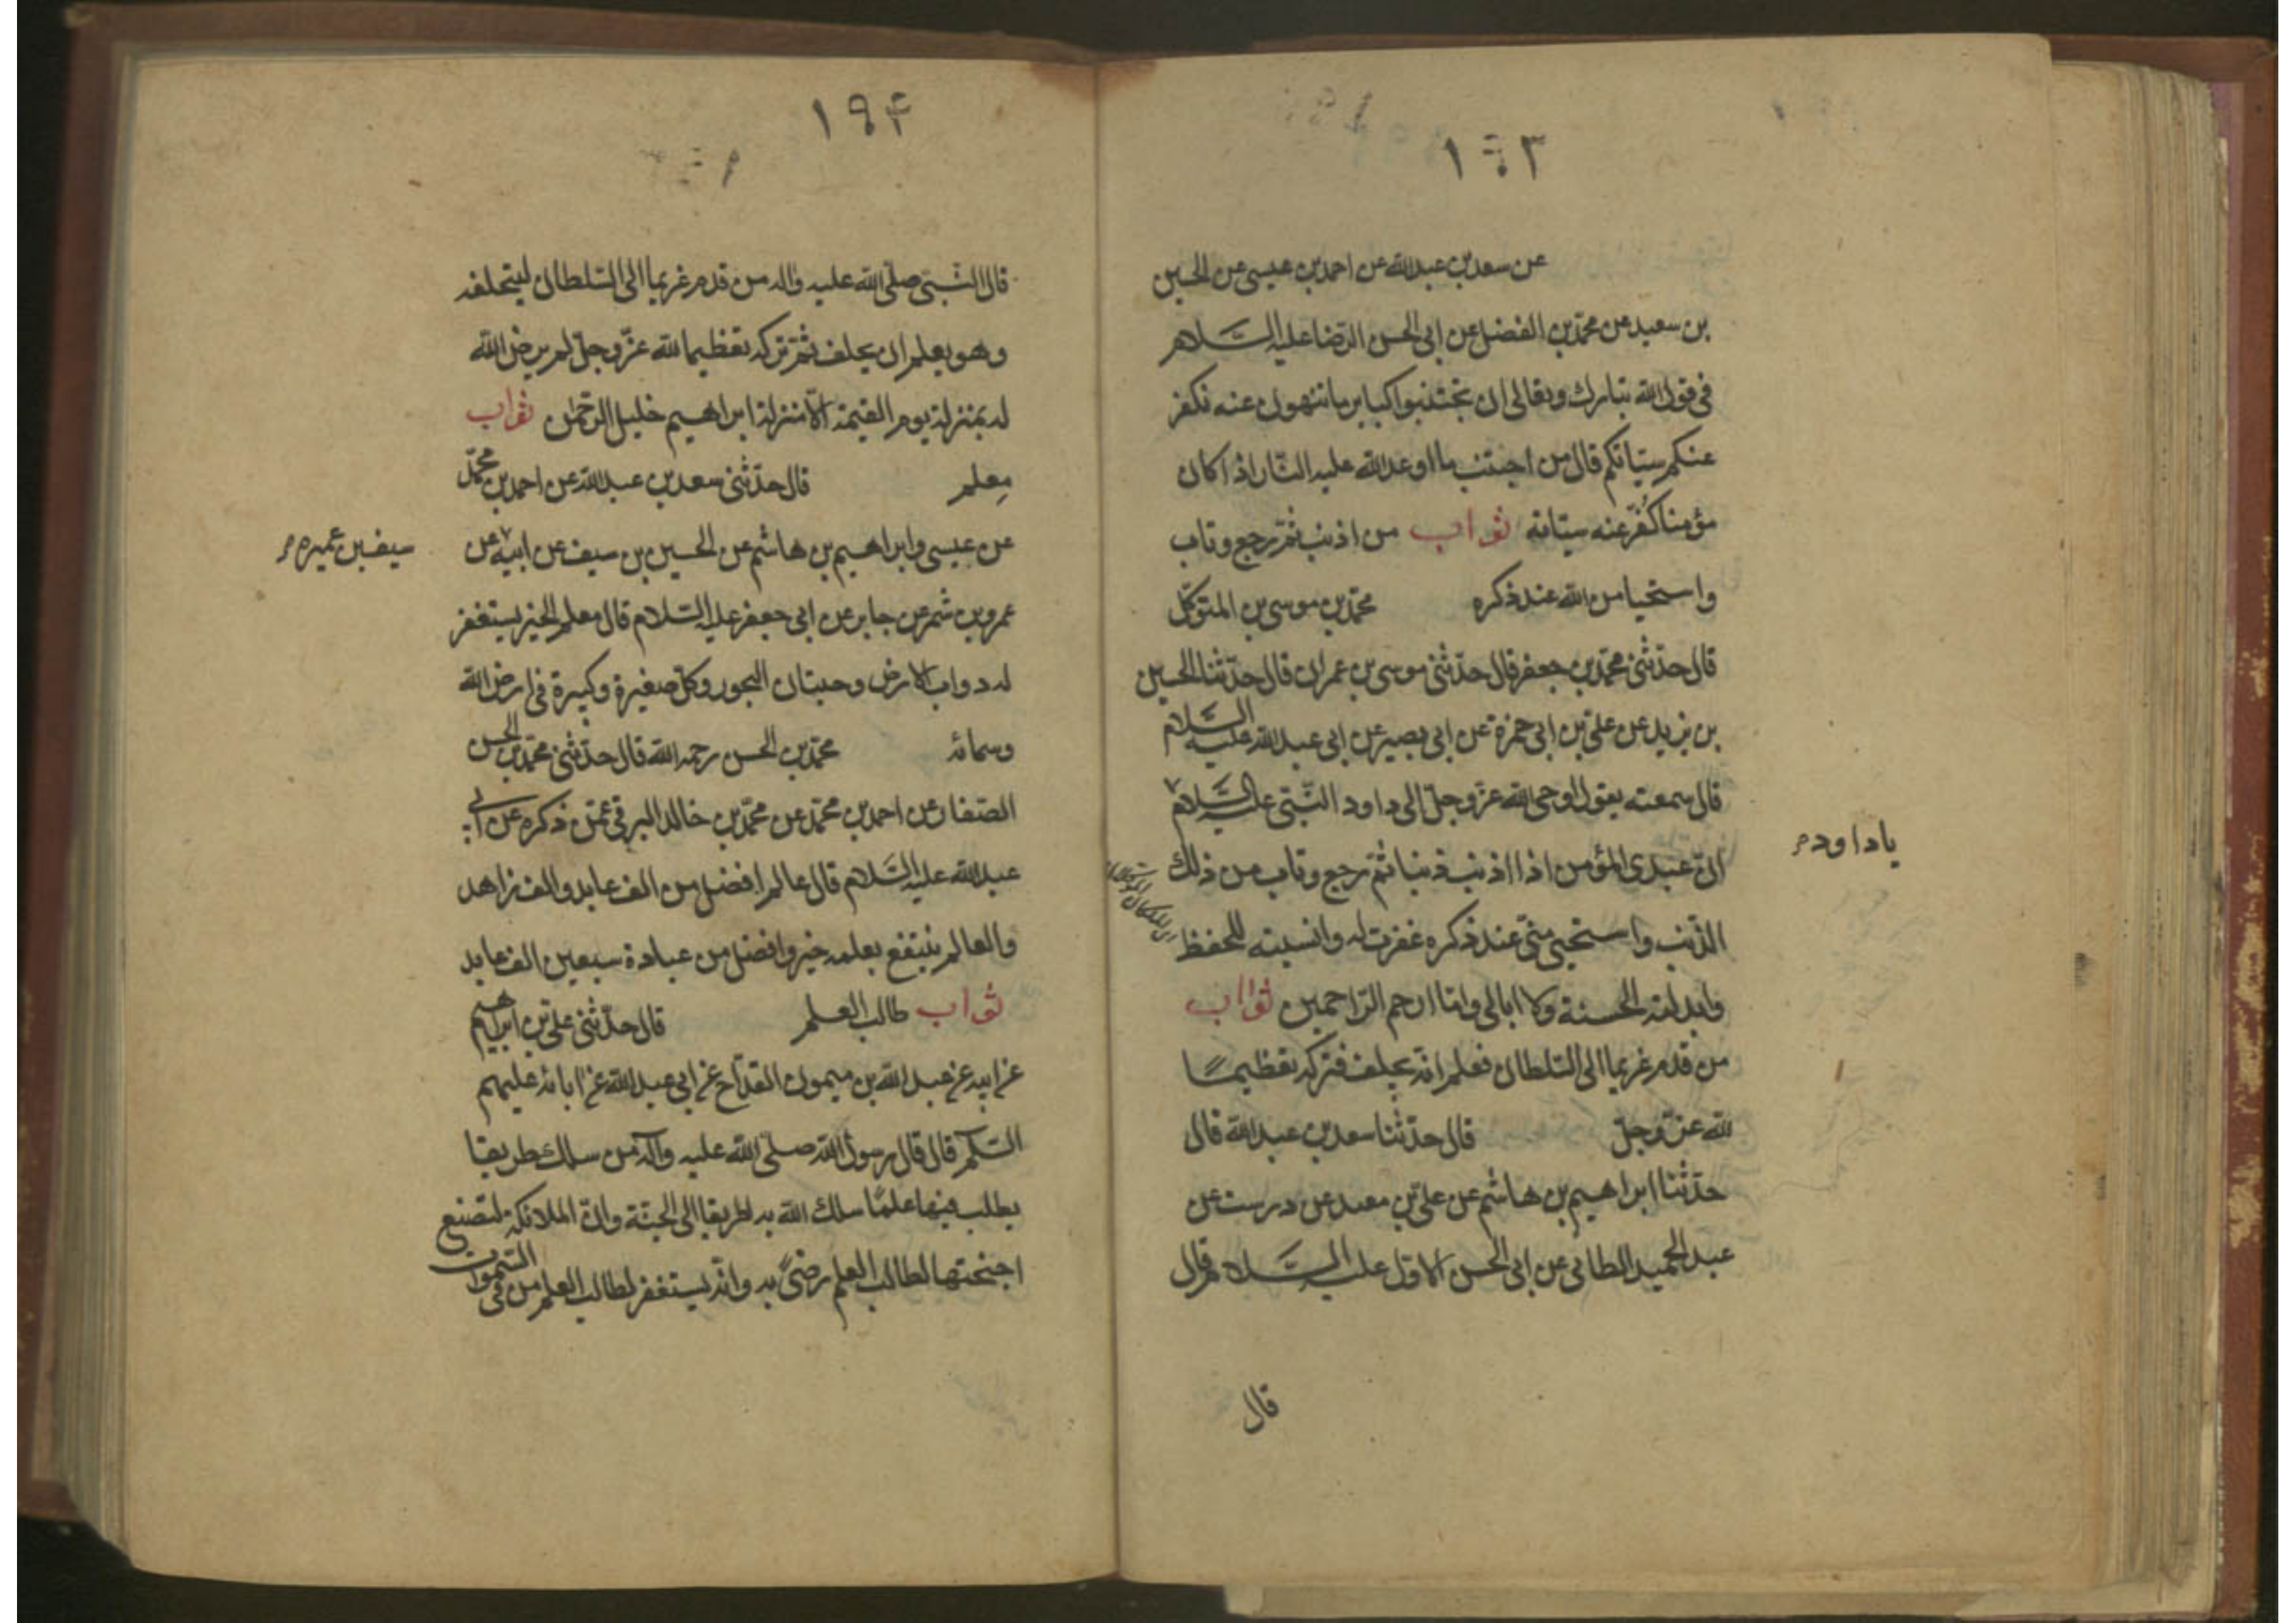 ١٩٣
عن سعد بن عبد الله عن احمد بن عيسى عن الحسين
بن سعيد عن محمد بن الفضل عن ابى الحسن الرضا عليه السلام
فى قول الله تبارك وتعالى ان تجتنبوا كباير ما تنهون عنه نكفر
عنكم سيئاتكم قال من اجتنب ما اوعد الله عليه النار اذا كان
مؤمنا كفر عنه سيئاته ثواب من اذنب ثم رجع وتاب
واستحيا من الله عند ذكره محمد بن موسى بن المتوكل
قال حدثنى محمد بن جعفر قال حدثنى موسى بن عمران قال حدثنا الحسين
بن يزيد عن على بن ابى حمزة عن ابى بصير عن ابى عبد الله عليه السلام
قال سمعته يقول اوحى الله عز وجل الى داود النبى عليه السلام
يا داود م
ان عبدى المؤمن اذا اذنب ذنبا ثم رجع وتاب من ذلك
الذنب واستحيى منى عند ذكره غفرت له وانسيته للحفظ
وابدلته الحسنة ولا ابالى وانا ارحم الراحمين ثواب
من قدم غريما الى السلطان فعلم انه يحلف فتركه تعظيما
لله عز وجل قال حدثنا سعد بن عبد الله قال
حدثنا ابراهيم بن هاشم عن على بن معبد عن درست عن
عبد الحميد الطائى عن ابى الحسن الاول عليه السلام قال
قال
١٩۴
قال النبى صلى الله عليه واله من قدم غريما الى السلطان ليتحلفه
وهو يعلم ان يحلف ثم تركه تعظيما لله عز وجل لم يرض الله
له بمنزلة يوم القيمة الا منزلة ابراهيم خليل الرحمن ثواب
معلم قال حدثنى سعد بن عبد الله عن احمد بن محمد
عن عيسى وابراهيم بن هاشم عن الحسين بن سيف عن ابيه عن
سيف بن عميره م
عمرو بن شمر عن جابر عن ابى جعفر عليه السلام قال معلم الخير يستغفر
له دواب الارض وحيتان البحور وكل صغيرة وكبيرة فى ارض الله
وسمائه محمد بن الحسن رحمه الله قال حدثنى محمد بن الحسن
الصفار عن احمد بن محمد عن محمد بن خالد البرقى عمن ذكره عن ابى
عبد الله عليه السلام قال عالم افضل من الف عابد والف زاهد
والعالم ينتفع بعلمه خير وافضل من عبادة سبعين الف عابد
ثواب طالب العلم قال حدثنى على بن ابراهيم
عن ابيه عن عبد الله بن ميمون القداح عن ابى عبد الله عن ابائه عليهم
السلم قال قال رسول الله صلى الله عليه واله من سلك طريقا
يطلب فيها علما سلك الله به طريقا الى الجنة وان الملائكة لتضع
اجنحتها لطالب العلم رضى به وانه يستغفر لطالب العلم من فى السموات